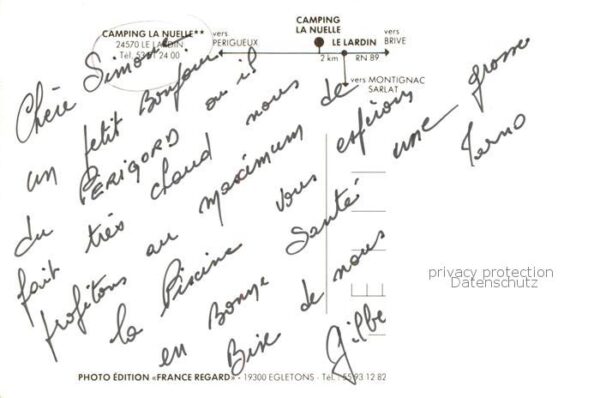 CAMPING LA NUELLE**
24570 LE LARDIN
Tél. 53 51 24 00
vers
PERIGUEUX
CAMPING
LA NUELLE
LE LARDIN
2 km
RN 89
vers
BRIVE
vers MONTIGNAC
SARLAT
Chère Simone
un petit Bonjour
du PERIGORD ou il
fait très chaud nous
profitons au maximum de
la Piscine vous espérons
en Bonne Santé une grosse
Bise de nous
Gilbe
PHOTO ÉDITION «FRANCE REGARD» - 19300 EGLETONS - Tél. 55 93 12 82
privacy protection
Datenschutz